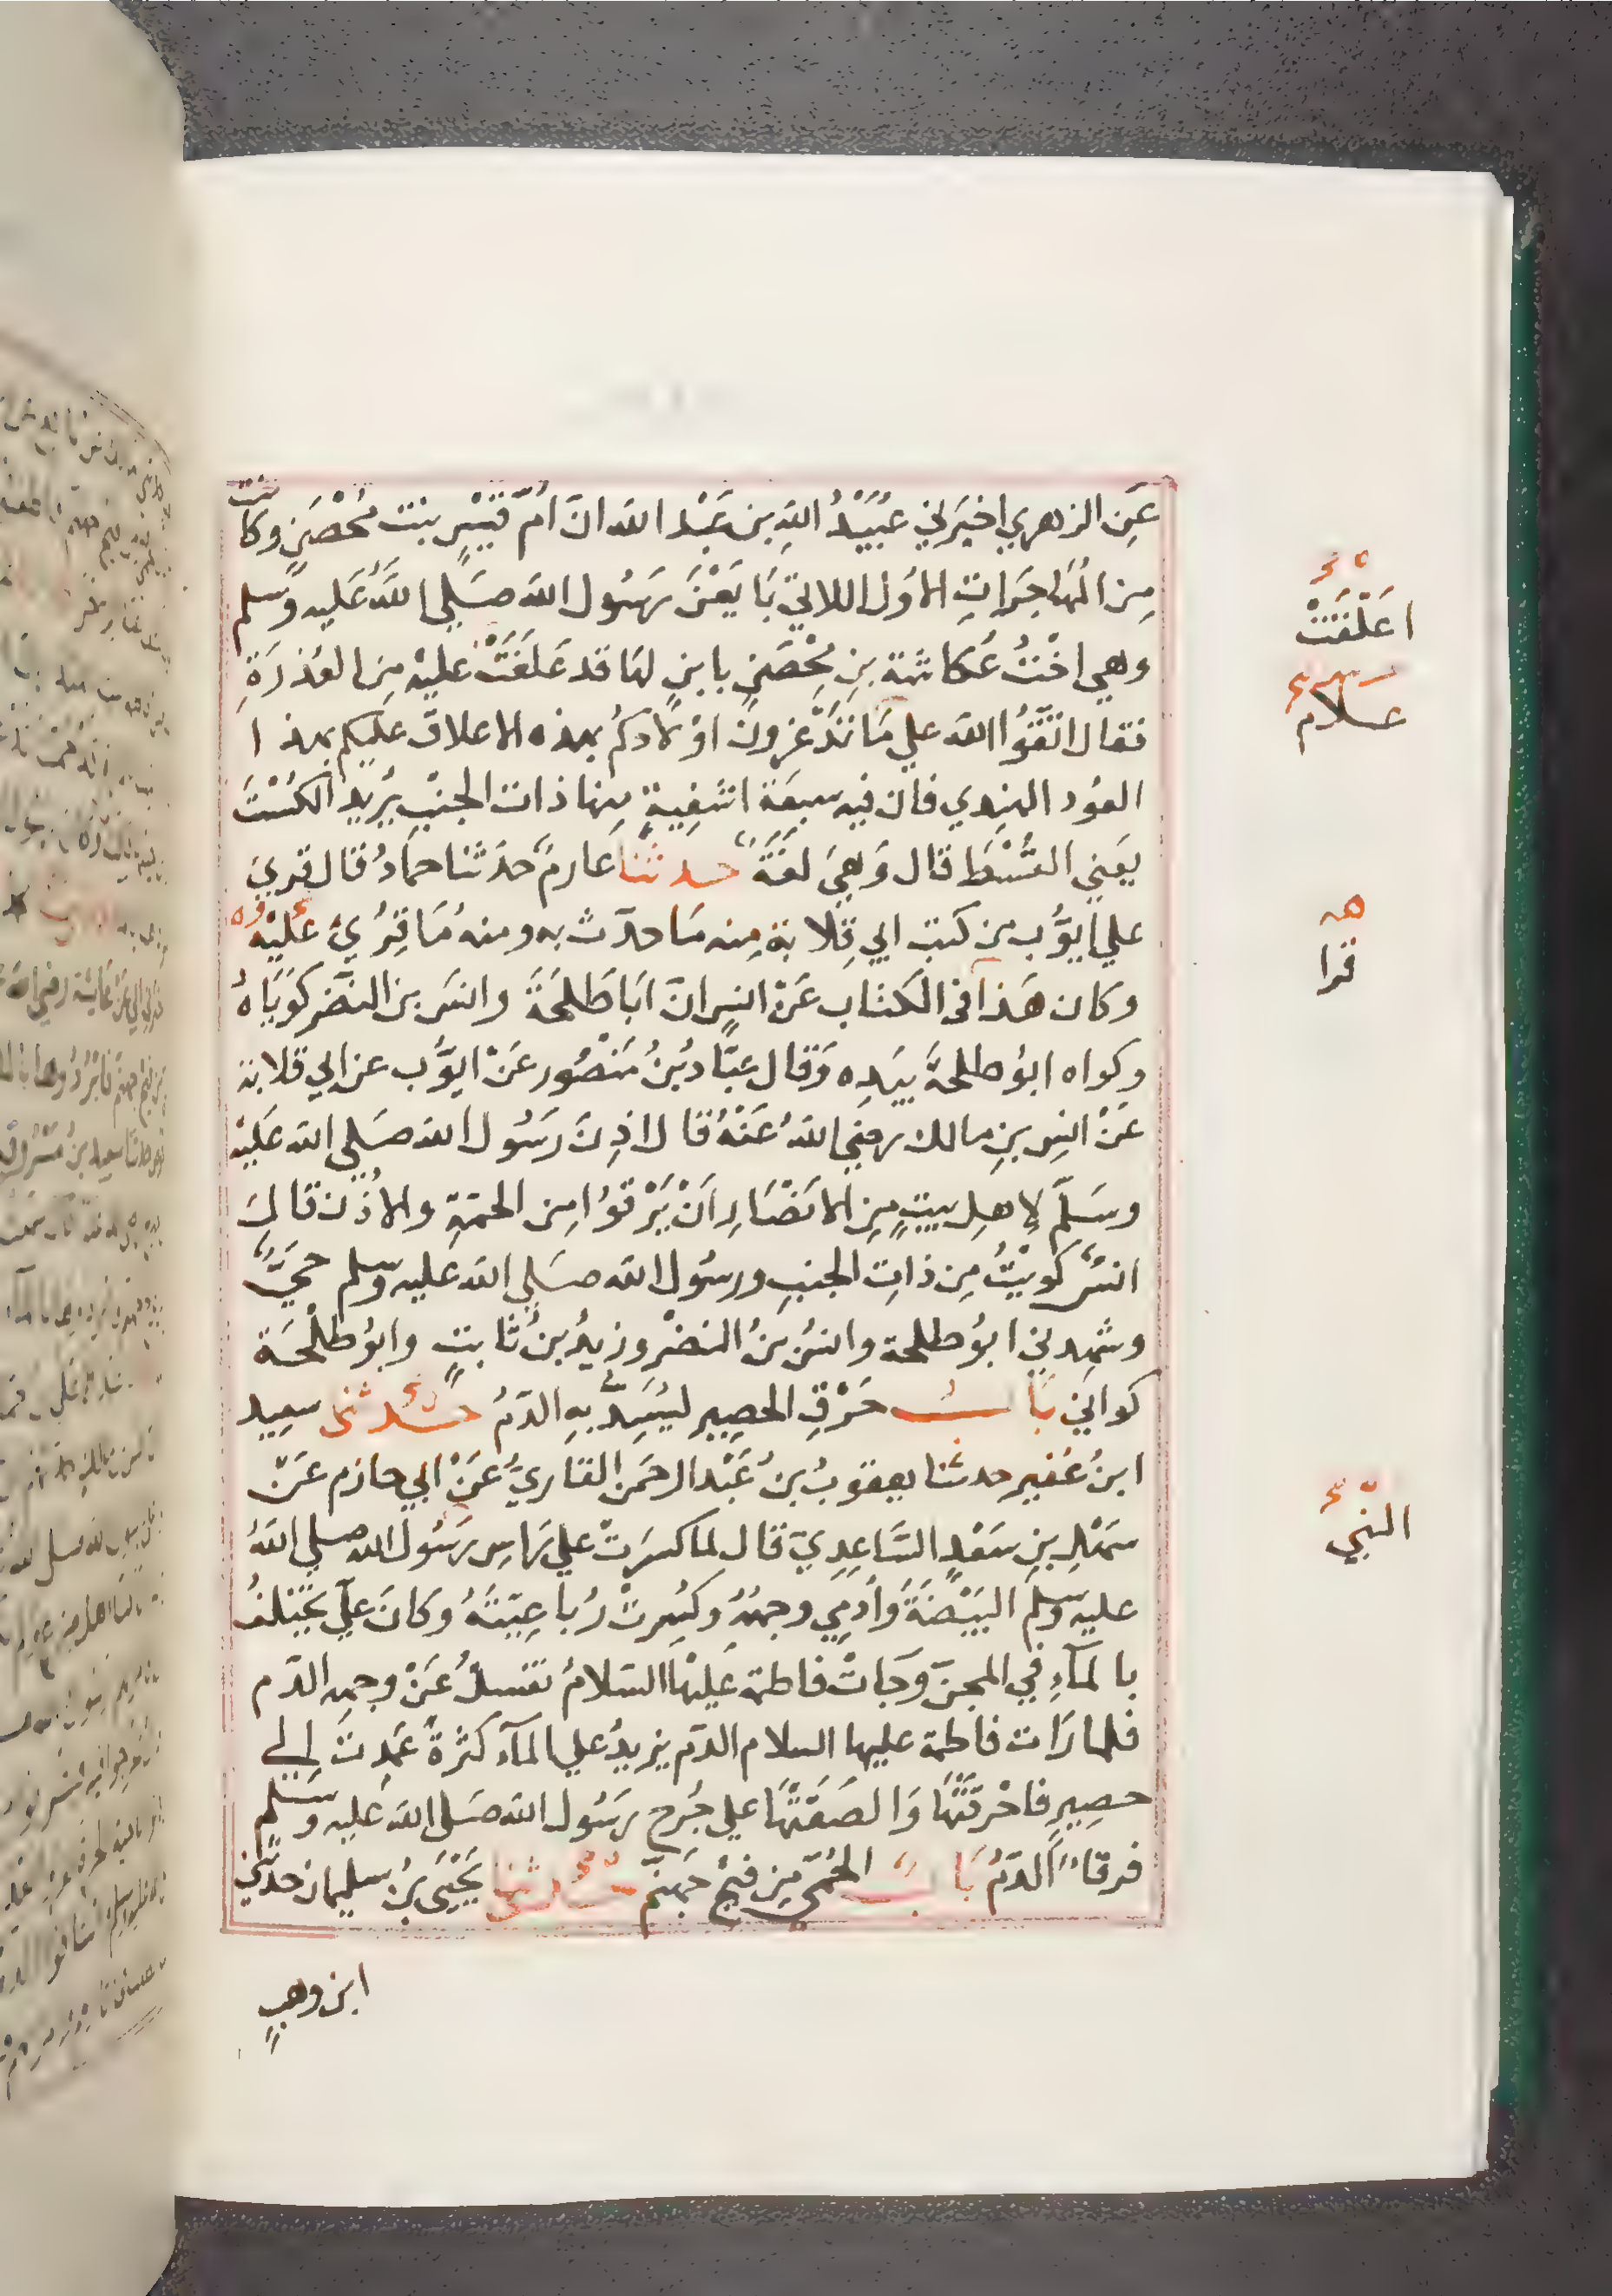 عَنِ الزهري اخبَرني عُبَيْدُ اللهِ بن عَبْد الله انَّ امَّ قَيْسٍ بنت مُحْصَنٍ وكانت
مِنَ المُهَاجرَاتِ الاوَل اللاتي بَايَعْنَ رَسُول الله صَلي اللهُ عَليه وَسلم
وهي اخْتُ عُكاشة بنِ مِحْصَنٍ بابنٍ لهَا قد عَلقَتْ عليْه مِنَ العُذرَةِ
فقال اتَّقوُا الله علي مَا تَدْغرونَ اوْلادكُم بهذه الاعلاق عليكم بهذا
العوُد الهندي فان فيه سبعَة اشفِيةٍ منها ذات الجَنْبِ يُريد الكُسْتَ
يعَني القُسْطَ قال وَهيَ لغَةٌ حدثنا عارمٌ حدثنا حمادُ قال قريَ
علي ايوُّب من كتبِ ابي قِلابة مِنه مَا حدّث به ومنهُ مَا قِرُيَ عَليْهِ
وكان هَذا في الكتاب عَنْ انسٍ انَّ ابَا طَلحَةَ وانسَ بن النَّضر كوَيَاهُ
وكواه ابوُ طلحَةَ بيَدِه وَقال عبَّاد بُنُ مَنْصُور عَنْ ايوُّب عن ابي قلابة
عَنْ انسِ بنِ مالك رضي اللهُ عَنْهُ قال اذِنَ رَسُول الله صَلي الله عَليْه
وسَلمَّ لاِهلِ بيتٍ مِنِ الانصَارِ اَنْ يَرْقوُا مِن الحمَةِ والاُذن قال
انسٌ كويْتُ مِن ذاتِ الجنبِ ورسوُل الله صَلي الله عليه وسلم حيٌّ
وشهدني ابوُ طلحة وانسُ بنُ النضْر وزيدُ بن ثابتٍ وابوُ طلْحَة
كواني بَابُ حَرْقِ الحصِيرِ ليُسَدَّ بِهِ الدَّمُ حدثني سعِيد
ابنُ عُفير حدثنا يعقوبُ بنُ عَبْد الرحَمن القاريُّ عَنْ ابي حازم عَنْ
سَهْلِ بنِ سَعْدٍ السَّاعِدِيّ قال لما كسرَتْ علي رَاسِ رسَوُل الله صلي اللهُ
عليه وَسلم البَيْضَةُ وَاُدْمِيَ وجههُ وكسُرتْ رُباعِيّتهُ وَكانَ عَليّ يَخْتلفُ
بالمآءِ في المجنّ وَجَاتْ فاطمة عَليْهَا السَلامُ تغسلُ عَنْ وجههِ الدّم
فلما رَاَت فاطمة عليها السلام الدّم يزيدُ علي المآء كثرةً عَمدتَ الي
حصِيرٍ فاحْرقَتْهَا وَالصَقَتْهَا علي جُرحِ رسَوُل الله صَلي الله عَليه وَسَلم
فرقاَ الدّمُ بَابٌ الحُمَّي مِن فيْح جَهنّم حدثنا يَحْيَي بنُ سليمان حدثني
ابن وهبٍ
اعَلْقَتْ
علام
قرا
النّبي